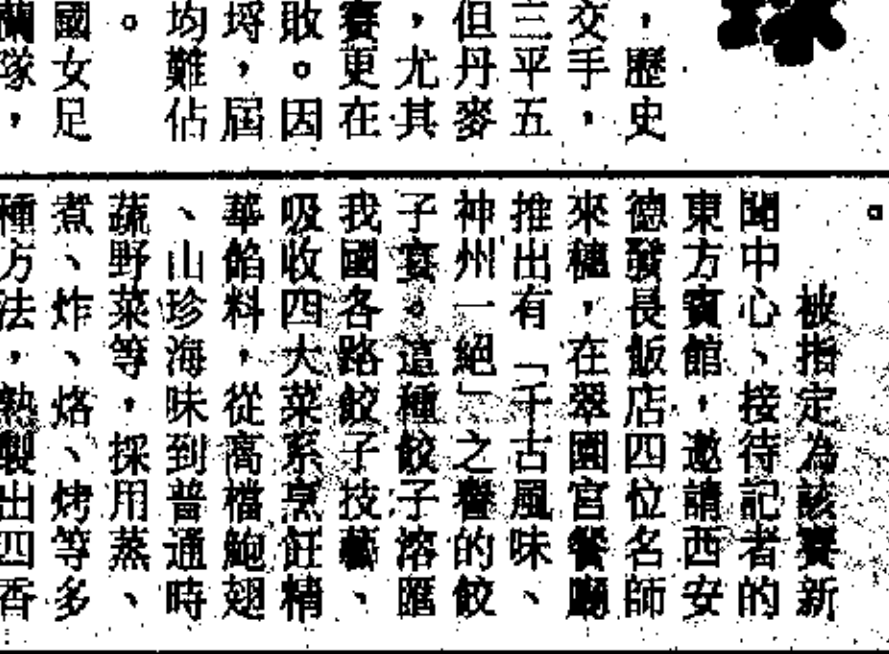 ，歷史
交手，
三平五
但丹麥
，尤其
賽更在
敗。因
埒，屆
均難佔
。
國女足
蘭隊，
。
被指定為該賽新
聞中心、接待記者的
東方賓館，邀請西安
德發長飯店四位名師
來穗，在翠園宮餐廳
推出有「千古風味、
神州一絕」之譽的餃
子宴。這種餃子溶匯
我國各路餃子技藝、
吸收四大菜系烹飪精
華餡料，從高檔鮑翅
、山珍海味到普通時
蔬野菜等，採用蒸、
煮、炸、烙、烤等多
種方法，熟製出四香